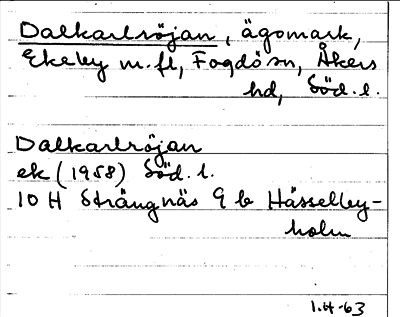 Dalkarlröjan, ägomark,
Ekeby m.fl, Fogdö sn, Åkers
hd, Söd. l.
Dalkarlröjan
ek (1958) Söd. l.
10 H Strängnäs 9 b Hässelby-
holm
1.4-63